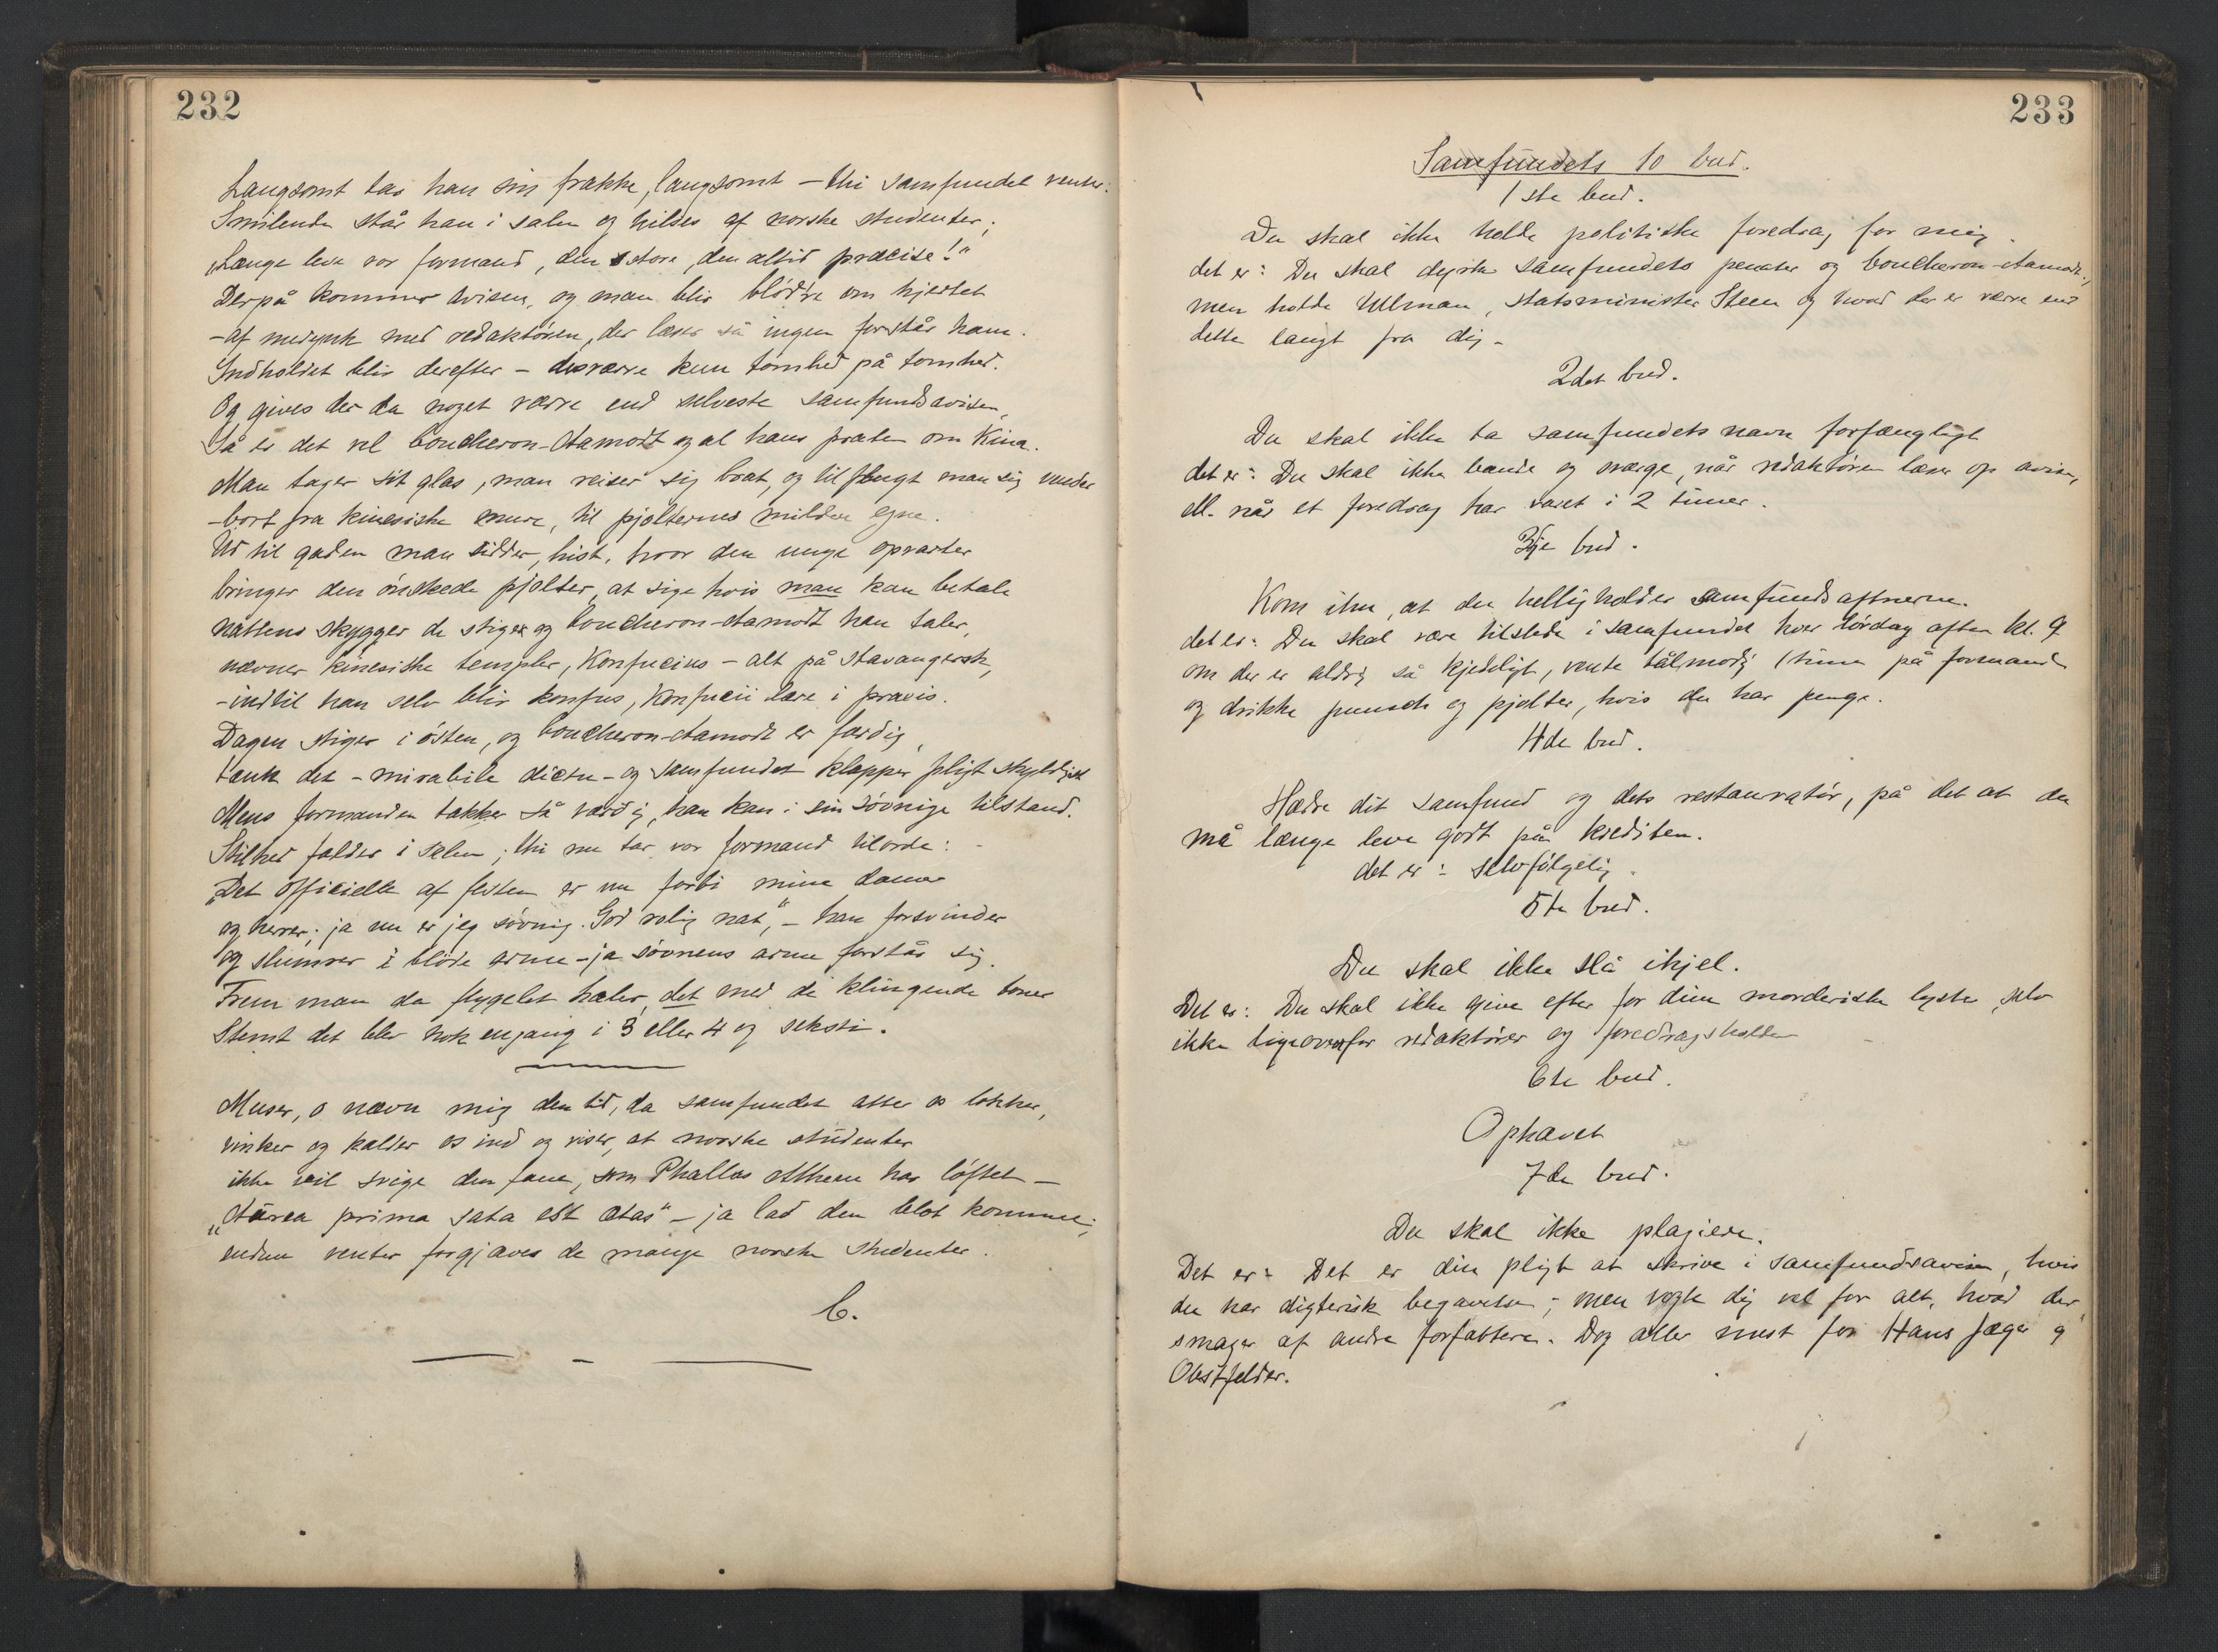 232
Langsomt tar han sin frakke, langsomt – thi samfundet venter:
Smilende står han i salen og hilses af norske studenter;
„Længe leve vor formand, den store, den altid præcise!“
Derpå kommer avisen, og man blir blödre om hjertet
– af medynk med redaktören, der læser så ingen forstår ham.
Indholdet blir derefter – desværre kun tomhed på tomhed.
Og gives der da noget værre end selveste samfundsavisen,
Så er det vel Boucheron-Aamodt og al hans praten om Kina.
Man tager sit glas, man reiser sig brat, og til flugt man sig vender
– bort fra kinesiske mure, til pjolternes mildere egne.
Ud til gaden man sidder, hist, hvor den unge opvarter
bringer den önskede pjolter, at sige hvis man kan betale
Nattens skygger de stiger og Boucheron-Aamodt han taler,
nævner kinesiske templer, Konfucius – alt på stavangersk,
– indtil han selv blir konfus, Konfucii lære i praxis.
Dagen stiger i östen, og Boucheron-Aamodt er færdig,
tænk det – mirabile dictu – og samfundet klapper pligtskyldigst
Mens formanden takker så værdig, han kan i sin sövnige tilstand.
Stilhed falder i salen; thi nu tar vor formand tilorde: –
„Det officielle af festen er nu forbi mine damer
og herrer; ja nu er jeg sövnig. God rolig nat“, – han forsvinder
og slumrer i blöde arme – ja sövnens arme forstår sig.
Frem man da flygelet haler, det med de klingende toner
Stemt det blev nok engang i 3 eller 4 og seksti.
Muser, o nævn mig den tid, da samfundet atter os lokker,
vinker og kalder os ind og viser, at norske studenter
ikke vil svige den fane, som Phallas Athene har löftet –
„Aurea prima sata est ætas“ – ja lad den blot komme;
endnu venter forgjæves de mange norske studenter.
C.
233
Samfundets 10 bud.
1ste bud.
Du skal ikke holde politiske foredrag for mig.
det er: Du skal dyrke samfundets penater og Boucheron-Aamodt,
men holde Ullman, statsminister Steen og hvad der er værre end
dette langt fra dig.
2det bud.
Du skal ikke ta samfundets navn forfængeligt
det er: Du skal ikke bande og sværge, når redaktören læser op avisen,
ell. når et foredrag har varet i 2 timer.
3dje bud.
Kom ihu, at du helligholder samfundsaftnerne.
det er: Du skal være tilstede i samfundet hver lördag aften kl. 9
om der er aldrig så kjedeligt, vente tålmodig 1 time på formand
og drikke punsch og pjolter, hvis du har penge.
4de bud.
Hædre dit samfund og dets restauratör, på det at du
må længe leve godt på krediten.
det er: selvfölgelig.
5te bud.
Du skal ikke slå ihjel.
Det er: Du skal ikke give efter for dine morderiske lyster, selv
ikke ligeoverfor redaktörer og foredragsholdere
6te bud.
Ophævet
7de bud.
Du skal ikke plagiere.
Det er: Det er din pligt at skrive i samfundsavisen, hvis
du har digterisk begavelse; men vogte dig vel for alt, hvad der
smager af andre forfattere. Dog aller mest for Hans Jæger og
Obstfelder.